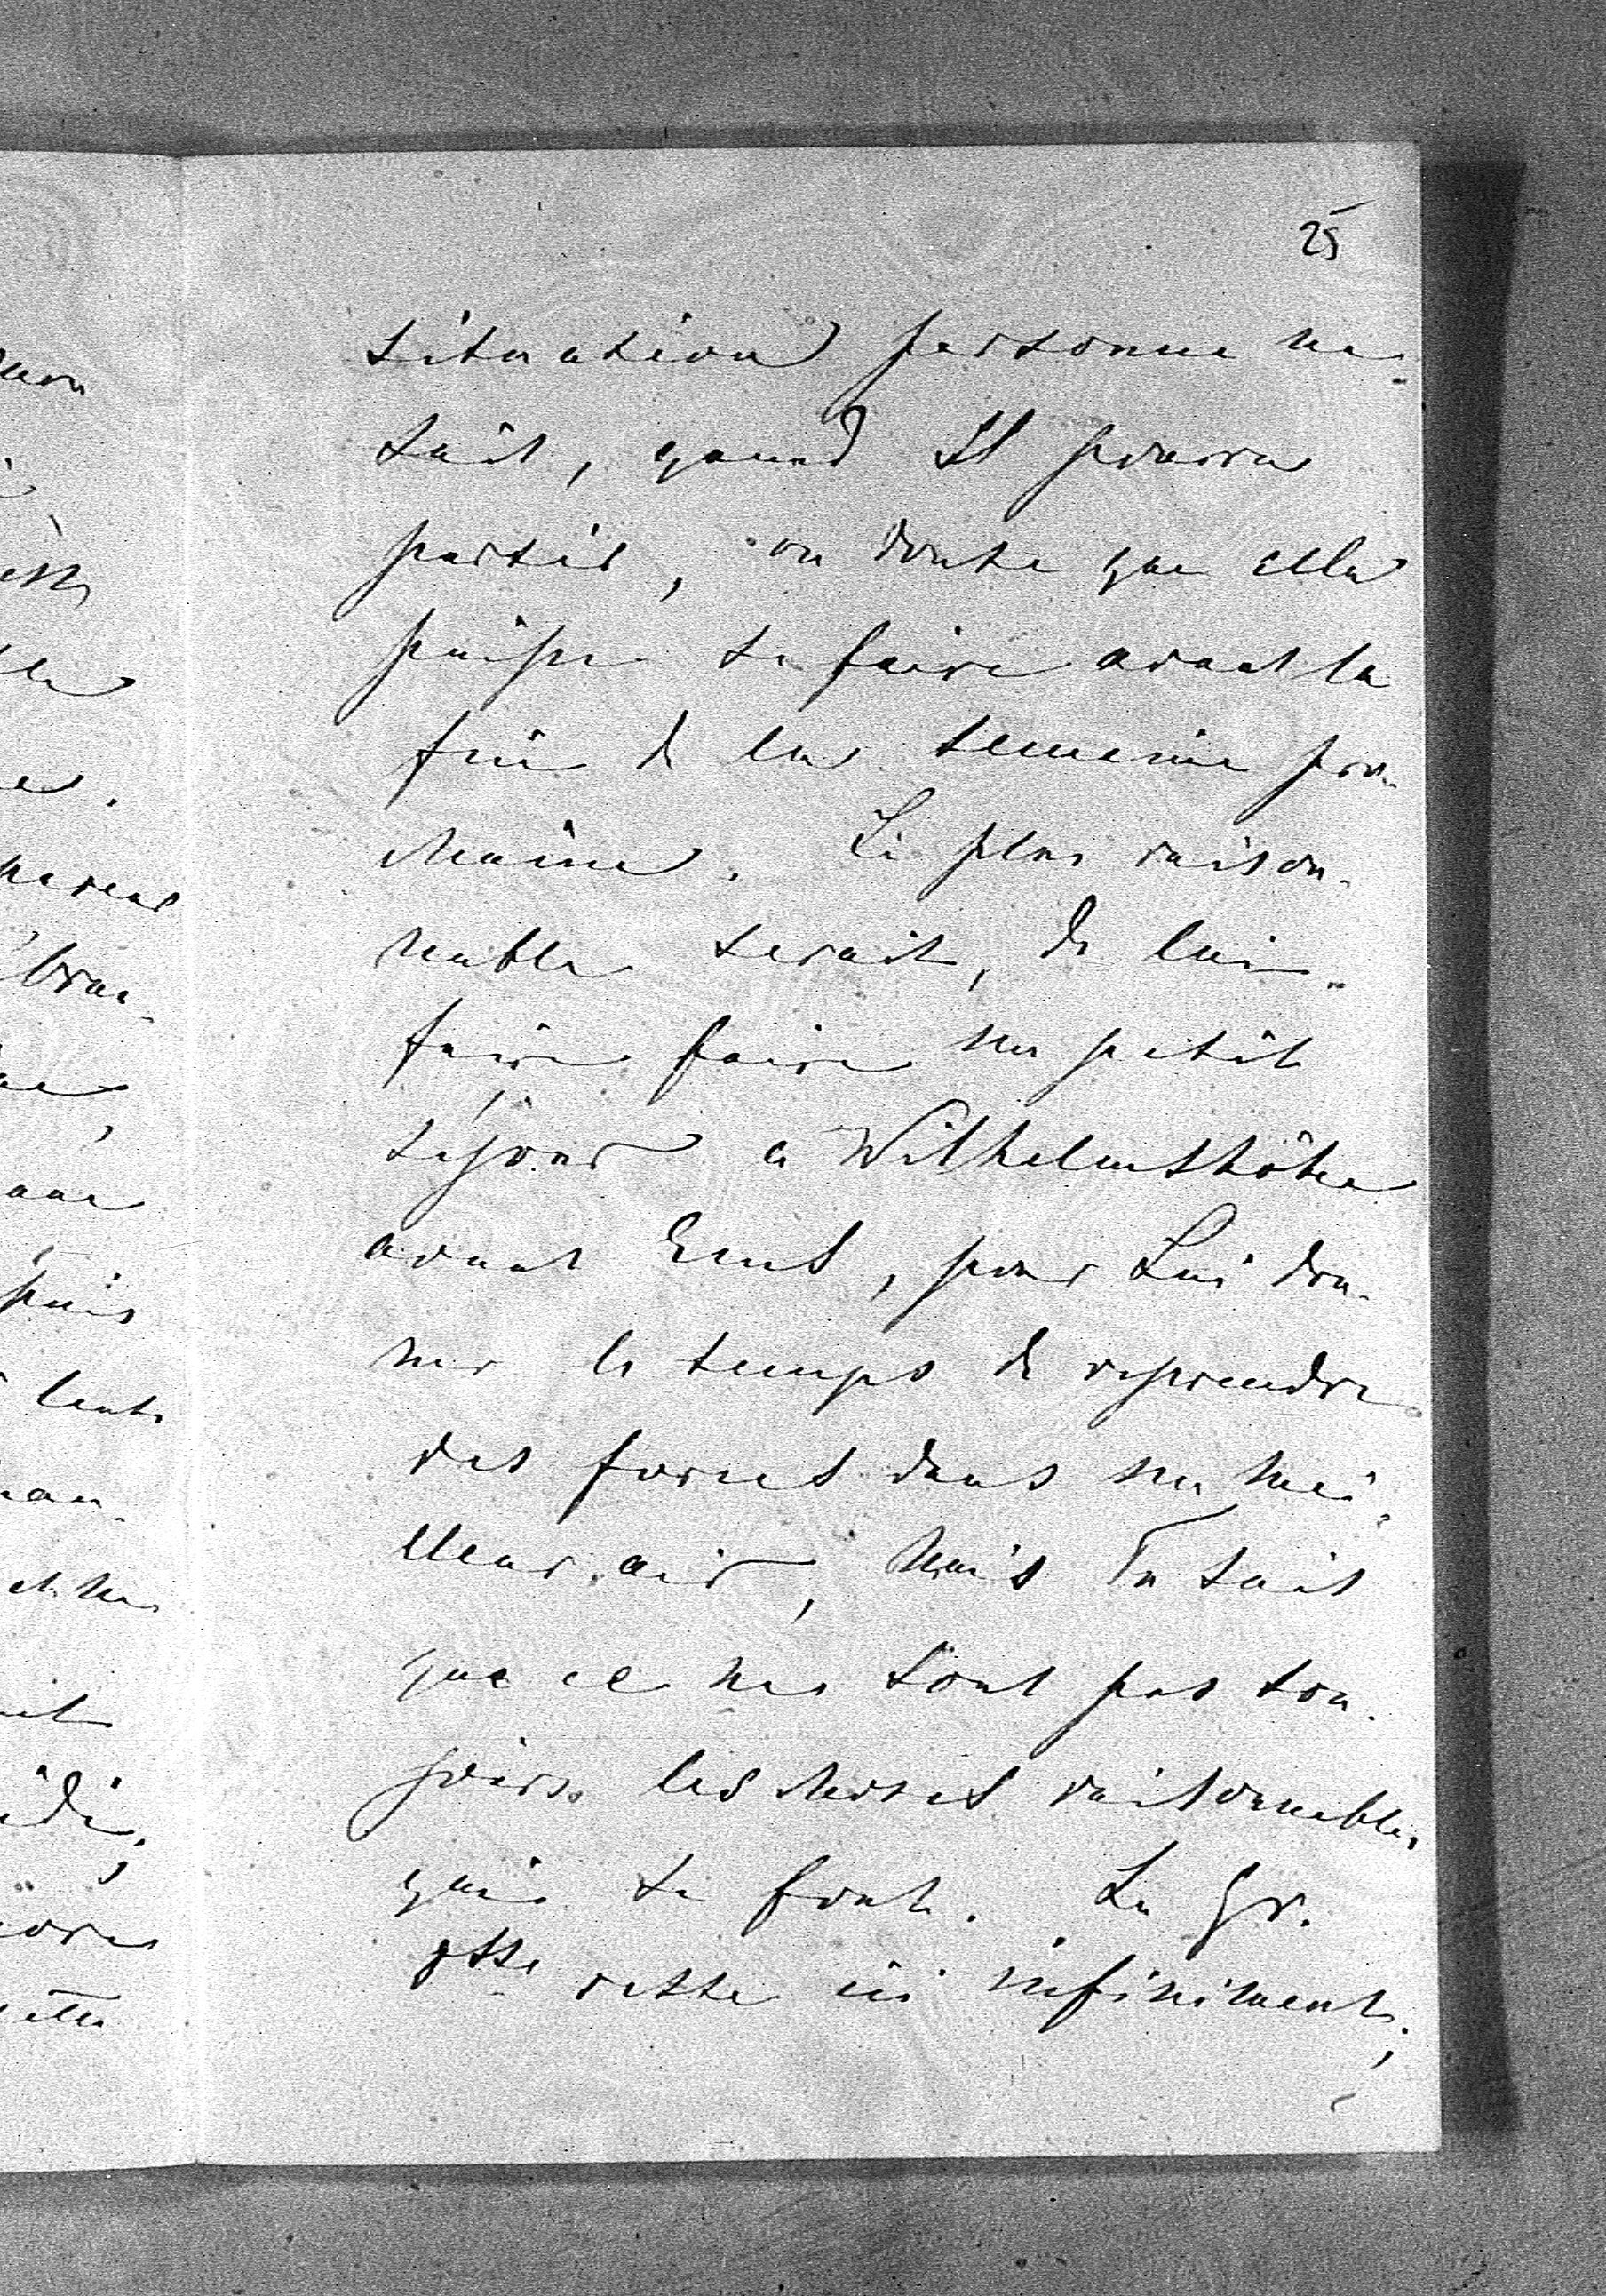 25
situation personne ne
sait, quand Il pourra
partir, on doute que cela
puisse se faire avant la
fin de la semaine pro-
chaine. Le plus raison-
nable serait, de lui
faire faire un petit
séjour à Wilhelmshöhe
avant Ems, pour Lui don-
ner le temps de reprendre
des forces dans un mei-
lleur air, mais Tu sais
que ce ne sont pas tou-
jours les choses raisonnables
qui se font. La Gr.
reste ici infiniment,